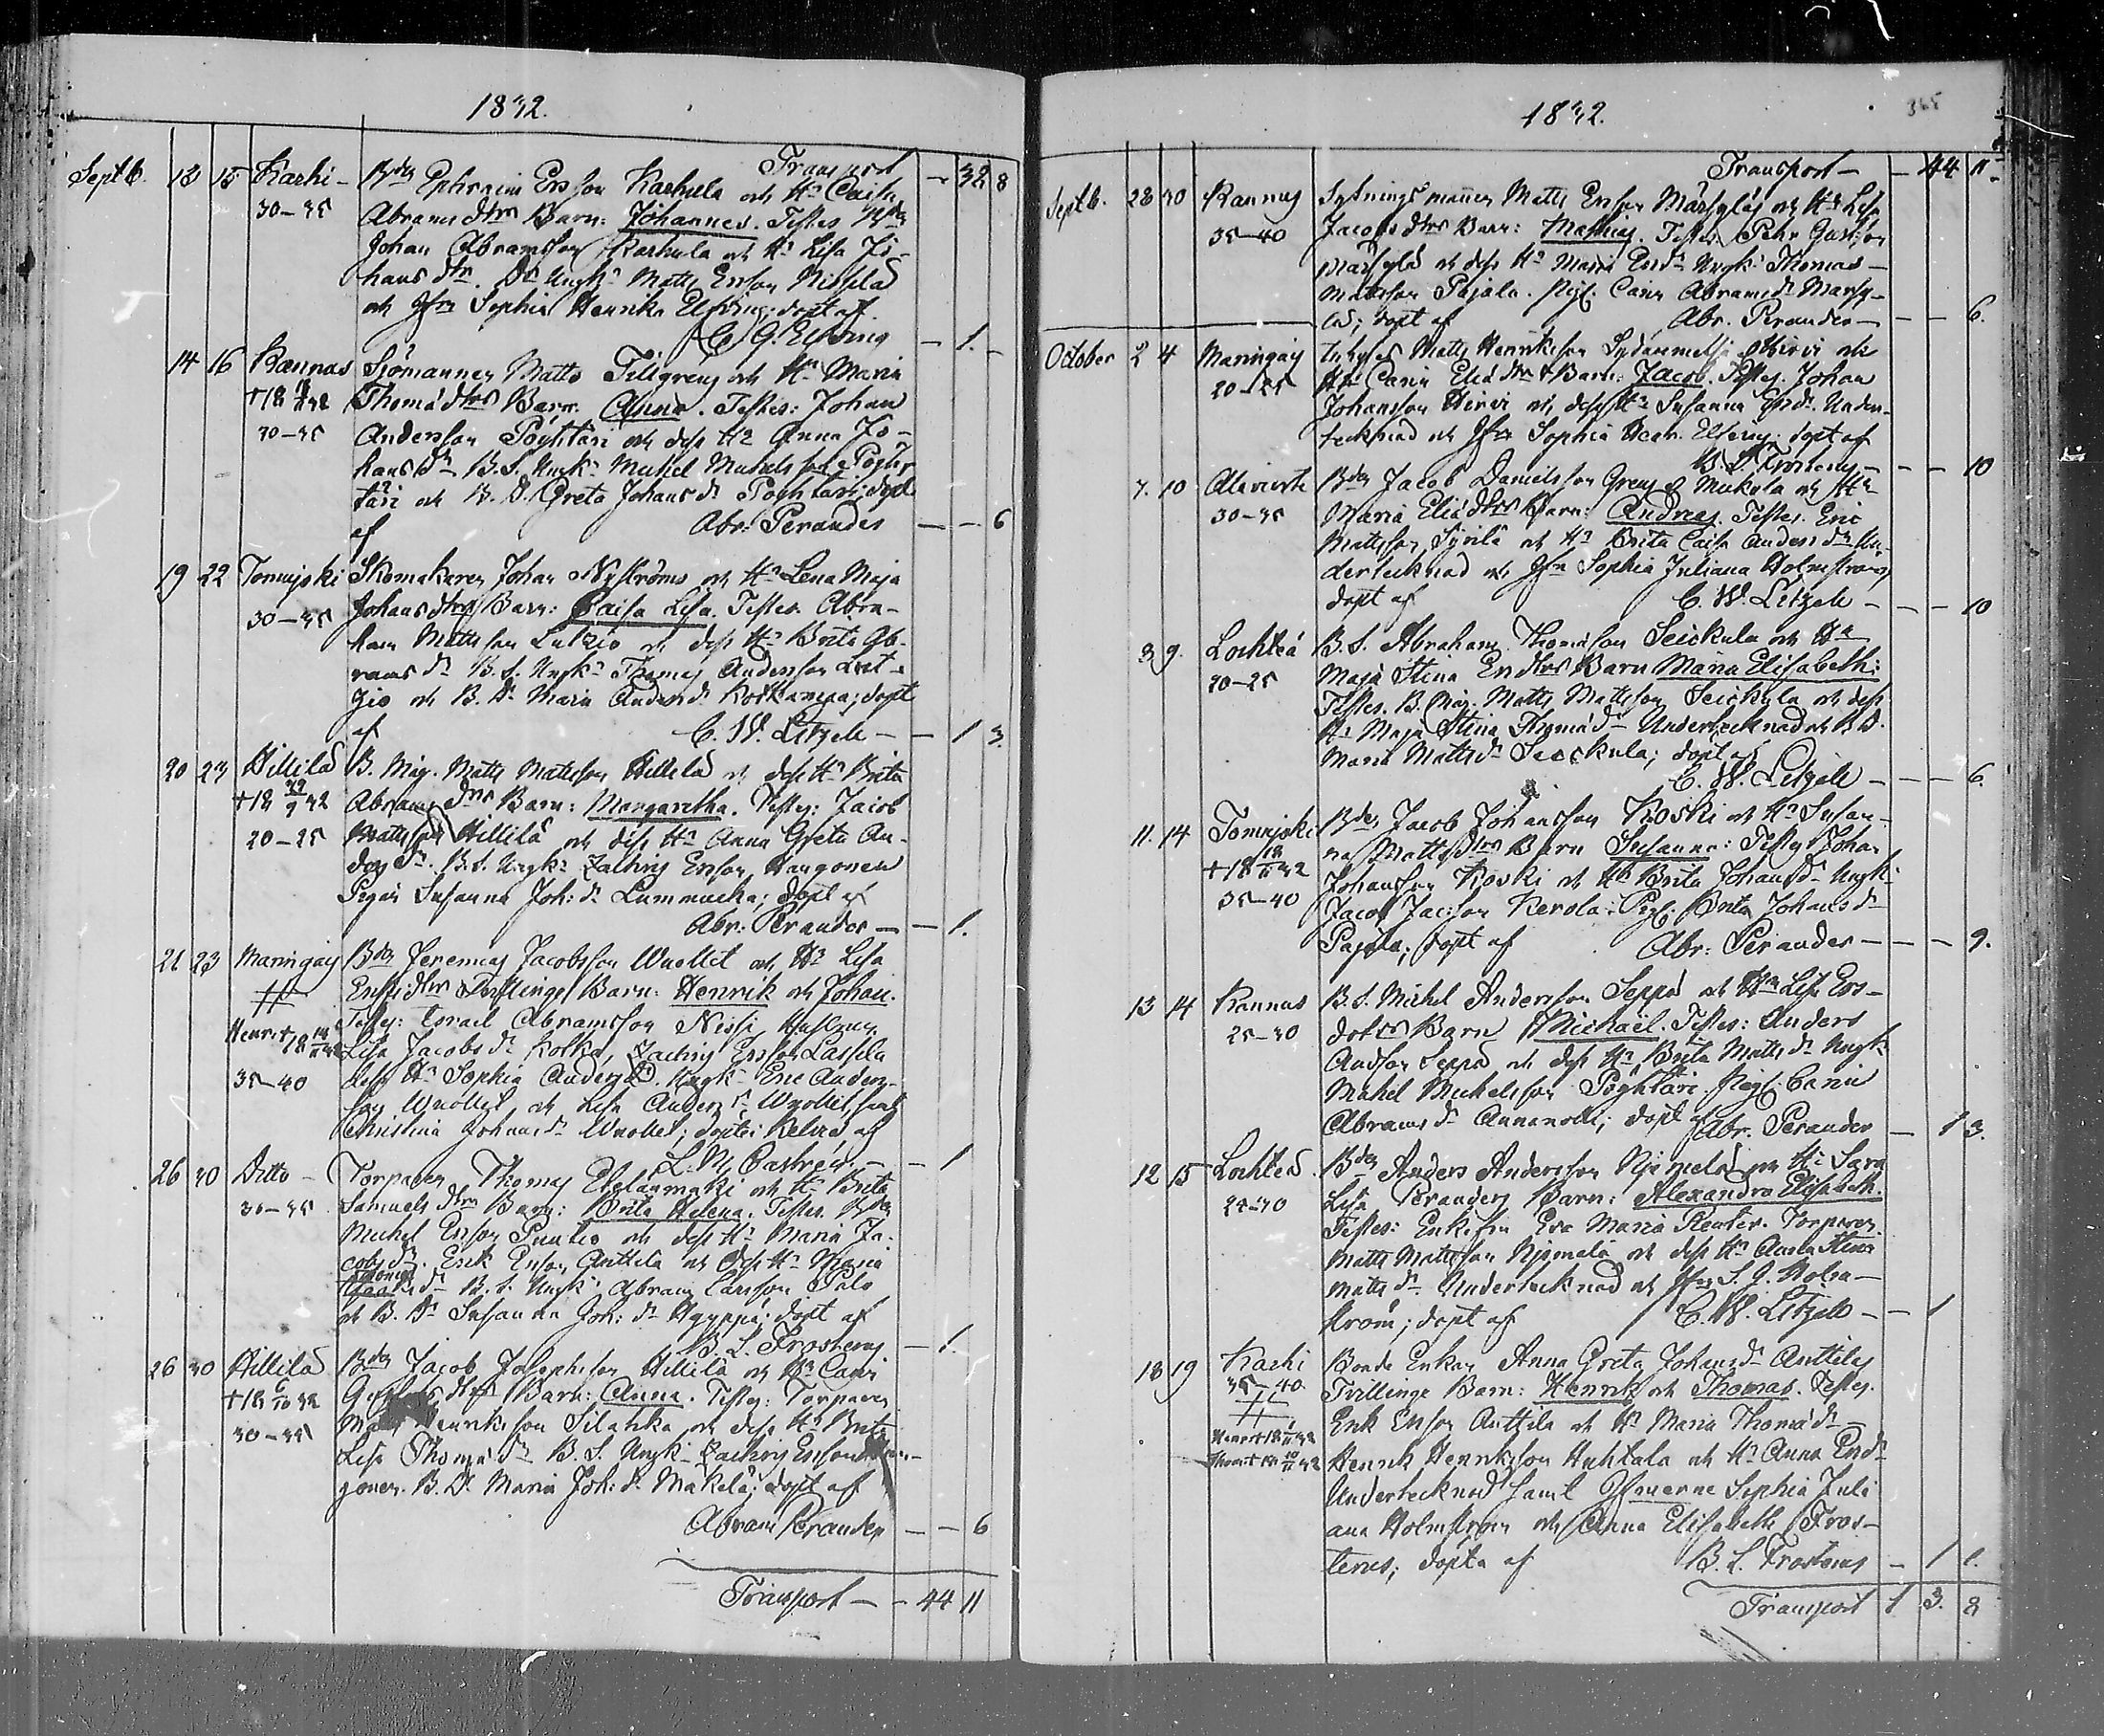 1832.
Transport — 32 8
Septb. 13 15 Karhi – Bdn Ephraim Ersson Karhula och Hu Caisa
30–35 Abramsdtrs Barn: Johannes. Testes Bdn
Johan Abramsson Karhula och Hu Lisa Jo-
hansdtr. Dr. Ungk: Matts Ersson Niskala
och Jfrn Sophia Henrika Elfving; döpt af
C. G. Elfving — 1. –
14 16 Kannus Sjömannen Matts Tillgren och Hu Maria
Thomædtrs Barn. Anna. Testes: Johan
30–35 Andersson Pöyhtäri och dess Hu Anna Jo-
hansdr B. S. Ungk: Michel Michelsson Pöyh-
täri och B. D. Greta Johansdr Pöyhtäri; döpt
af Abr: Perander — — 6
19 22 Tomujoki Skomakaren Johan Nyströms och Hu Lena Maja
30–35 Johansdtrs Barn: Caisa Lisa. Testes. Abra-
ham Mattsson Lutzio och dess Hu Brita Ab-
ramsdr B. S. Ungk: Thomas Andersson Lut-
zio och B. D. Maria Andersdr; döpt
af C. W. Litzell — — 1 3.
20 23 Hillilä B. Måg. Matts Mattsson Hillilä och dess Hu Brita
Abramsdtrs Barn: Margaretha. Testes: Jacob
20–25 Mattsson Hillilä och dess Hu Anna Greta An-
dersdr. B. S. Ungk: Zachris Ersson Hangonen
Pigan Susanna Joh: dr Lummucka; döpt af
Abr. Perander — — 1.
21 23 Maringais Bdn Jeremias Jacobsson Wuollet och Hu Lisa
Ersdtrs Tvillinge Barn: Henrik och Johan.
Testes: Israel Abramsson Nissi,
Lisa Jacobsdr Kotka, Zachris Ersson Lassila
35–40 dess Hu Sophia Andersdr. Ungk: Eric Anders-
son Wuollet och Lisa Andersdr Wuollet, samt
Christina Johansdr Wuollet; döpte i Kelviå af
L. M. Castrén. — — 1
26 30 Ditto – Torparen Thomas Etelänmäki och Hu Brita
30–35. Samuelsdtrs Barn: Brita Helena. Testes. Bdn
Michel Ersson Puutio och dess Hu Maria Ja-
cobsdr. Erik Ersson Anttila och dess Hu Maria
Thomædr B. S. Ungk: Abram Carlsson Palo
och B. D. Susanna Joh: dr Hyyppä; döpt af
B. L. Frosterus — 1.
26 30 Hillilä Bdn Jacob Josephsson Hillilä och Hu Carin
Gustafsdtrs Barn: Anna. Testes: Torparen
30–35 Henriksson Silahka och dess Hu Brita
Lisa Thomædr B. S. Ungk: Zachris Ersson Han-
gonen. B. D. Maria Joh: dr Mäkelä; döpt af
Abram Perander — — 6
Transport — – 44 11
1832.
365
Transport — — 44 11
Septb. 28 30 Kannus Sytningsmannen Matts Ersson Märsylä och Hu Lisa
35–40 Jacobsdtrs Barn: Mathias. Testes. Pehr Gustsson
Märsylä och dess Hu Maria Ersdr Ungk: Thomas
Mattsson Pajala. Pig: Carin Abramsdr Märsy-
lä; döpt af Abr. Perander — — — 6.
October 2 4 Maringais Inhyses Matts Henriksson Hirvi och
20–25 Hu Carin Eliædtrs Barn: Jacob. Testes. Johan
Johansson Hirvi och dess Hu Susanna Ersdr. Under-
tecknad och Jfrn Sophia Henr. Elfving; döpt af
B. L. Frosterus — — — 10
7. 10 Alavirte Bdn Jacob Danielsson Greus Mickola och Hu
30–35 Maria Eliædtrs Barn: Andreas. Testes. Eric
Mattsson Syrilä och Hu Brita Caisa Andersdr Un-
dertecknad och Jfrn Sophia Juliana Holmström;
döpt af C. W. Litzell — — — 10
3 9. Lochteå B. S. Abraham Thomasson Seickula och Hu
20–25 Maja Stina Ersdtrs Barn Maria Elisabeth:
Testes. B. Måg. Matts Mattsson Seickula och dess
Hu Maja Stina Thomædr Undertecknad och B. D.
Maria Mattsdr Seickula; döpt af
C. W. Litzell — — — 6.
11. 14 Tomujoki Bdn Jacob Johansson Koski och Hu Susan-
na Mattsdtrs Barn Susanna: Testes Johan
Johansson Koski och Hu Brita Johansdr Ungk:
35–40 Jacob Jacsson Kerola. Pig: Brita Johansdr
Pajala; döpt af Abr: Perander — — — 9.
13 14 Kannus B. S. Michel Andersson Seppä och Hu Lisa Ers-
25–30 dotrs Barn Michaël. Testes: Anders
Andsson Seppä och dess Hu Brita Mattsdr Ungk:
Michel Michelsson Pöyhtäri Pig: Carin
Abramsdr Annanolli; döpt af Abr. Perander — 1 3.
12 15 Lochteå. Bdn Anders Andersson Njemelä och Hu Sara
25–30 Lisa Peranders Barn: Alexandra Elisabeth.
Testes: Enkefru Eva Maria Reuter. Torparen
Matts Mattsson Njemelä och dess Hu Anna Stina
Mattsdr Undertecknad och Jfrn S. J. Holm-
ström; döpt af C. W. Litzell — — 1
18 19 Karhi Bonde Enkan Anna Greta Johansdr Anttilas
35–40. Tvillinge Barn: Henrik och Thomas. Testes.
Erik Ersson Anttila och Hu Maria Thomædr
Henrik Henriksson Huhtala och Hu Anna Ersdr
Undertecknad samt Jfrnerne Sophia Juli
ana Holmström och Anna Elisabeth Fros-
terus; döpta af B. L. Frosterus — 1 1.
Transport 1 3. 8